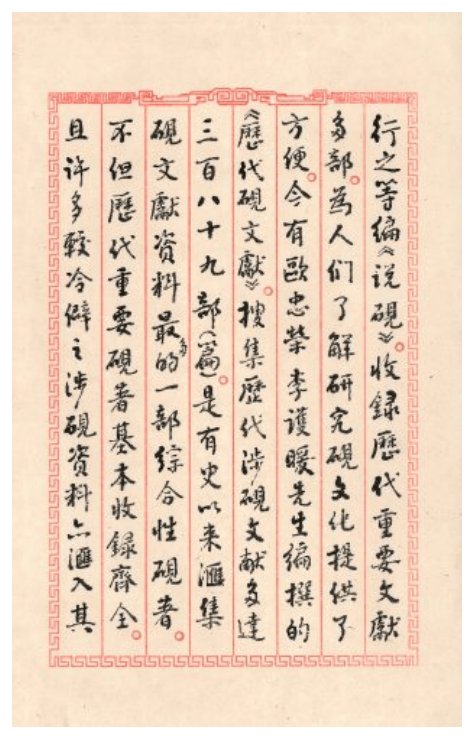 行之等編《说硯》。收録歷代重要文獻
多部。為人们了解研究硯文化提供了
方便。今有歐忠榮李護暖先生編撰的
《歷代硯文獻》。搜集歷代涉硯文献多達
三百八十九部（篇）。是有史以来滙集
硯文獻資料最多的一部综合性硯著。
不但歷代重要硯著基本收録齊全。
且许多較冷僻之涉硯资料亦滙入其